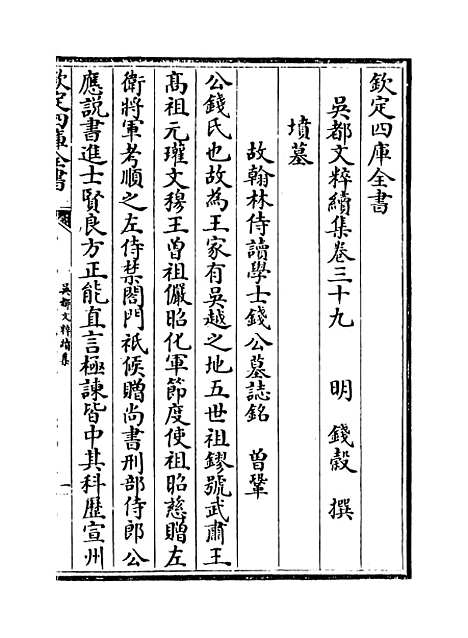 欽定四庫全書
吳都文粹續集卷三十九 明 錢榖 撰
墳墓
故翰林侍讀學士錢公墓誌銘 曾鞏
公錢氏也故為王家有吳越之地五世祖鏐號武肅王
髙祖元瓘文穆王曾祖儼昭化軍節度使祖昭慈贈左
衛將軍考順之左侍禁閤門祇候贈尚書刑部侍郎公
應説書進士賢良方正能直言極諫皆中其科歴宣州
欽定四庫全書
吳都文粹續集
一